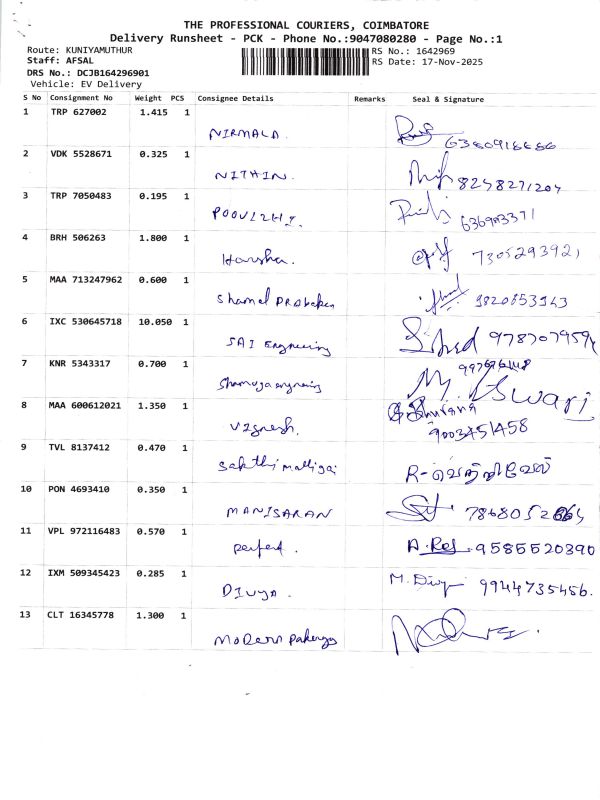 THE PROFESSIONAL COURIERS, COIMBATORE
Delivery Runsheet - PCK - Phone No.:9047080280 - Page No.:1
Route: KUNIYAMUTHUR RS No.: 1642969
Staff: AFSAL RS Date: 17-Nov-2025
DRS No.: DCJB164296901
Vehicle: EV Delivery
S No Consignment No Weight PCS Consignee Details Remarks Seal & Signature
1 TRP 627002 1.415 1
NIRMALA.
2 VDK 5528671 0.325 1
NITHIN. 8248271204
3 TRP 7050483 0.195 1
POOVIZHI.
4 BRH 506263 1.800 1
Harsha. 7305293921
5 MAA 713247962 0.600 1
Shamel Prabakan
6 IXC 530645718 10.050 1
SAI Engineering
7 KNR 5343317 0.700 1
8 MAA 600612021 1.350 1
Vignesh. 9003451458
9 TVL 8137412 0.470 1
Sakthi malligai R-வெற்றிவேல்
10 PON 4693410 0.350 1
MANISARAN
11 VPL 972116483 0.570 1
perfect. 9585520390
12 IXM 509345423 0.285 1
DIVYA. M. Divy 9944735456.
13 CLT 16345778 1.300 1
Modern